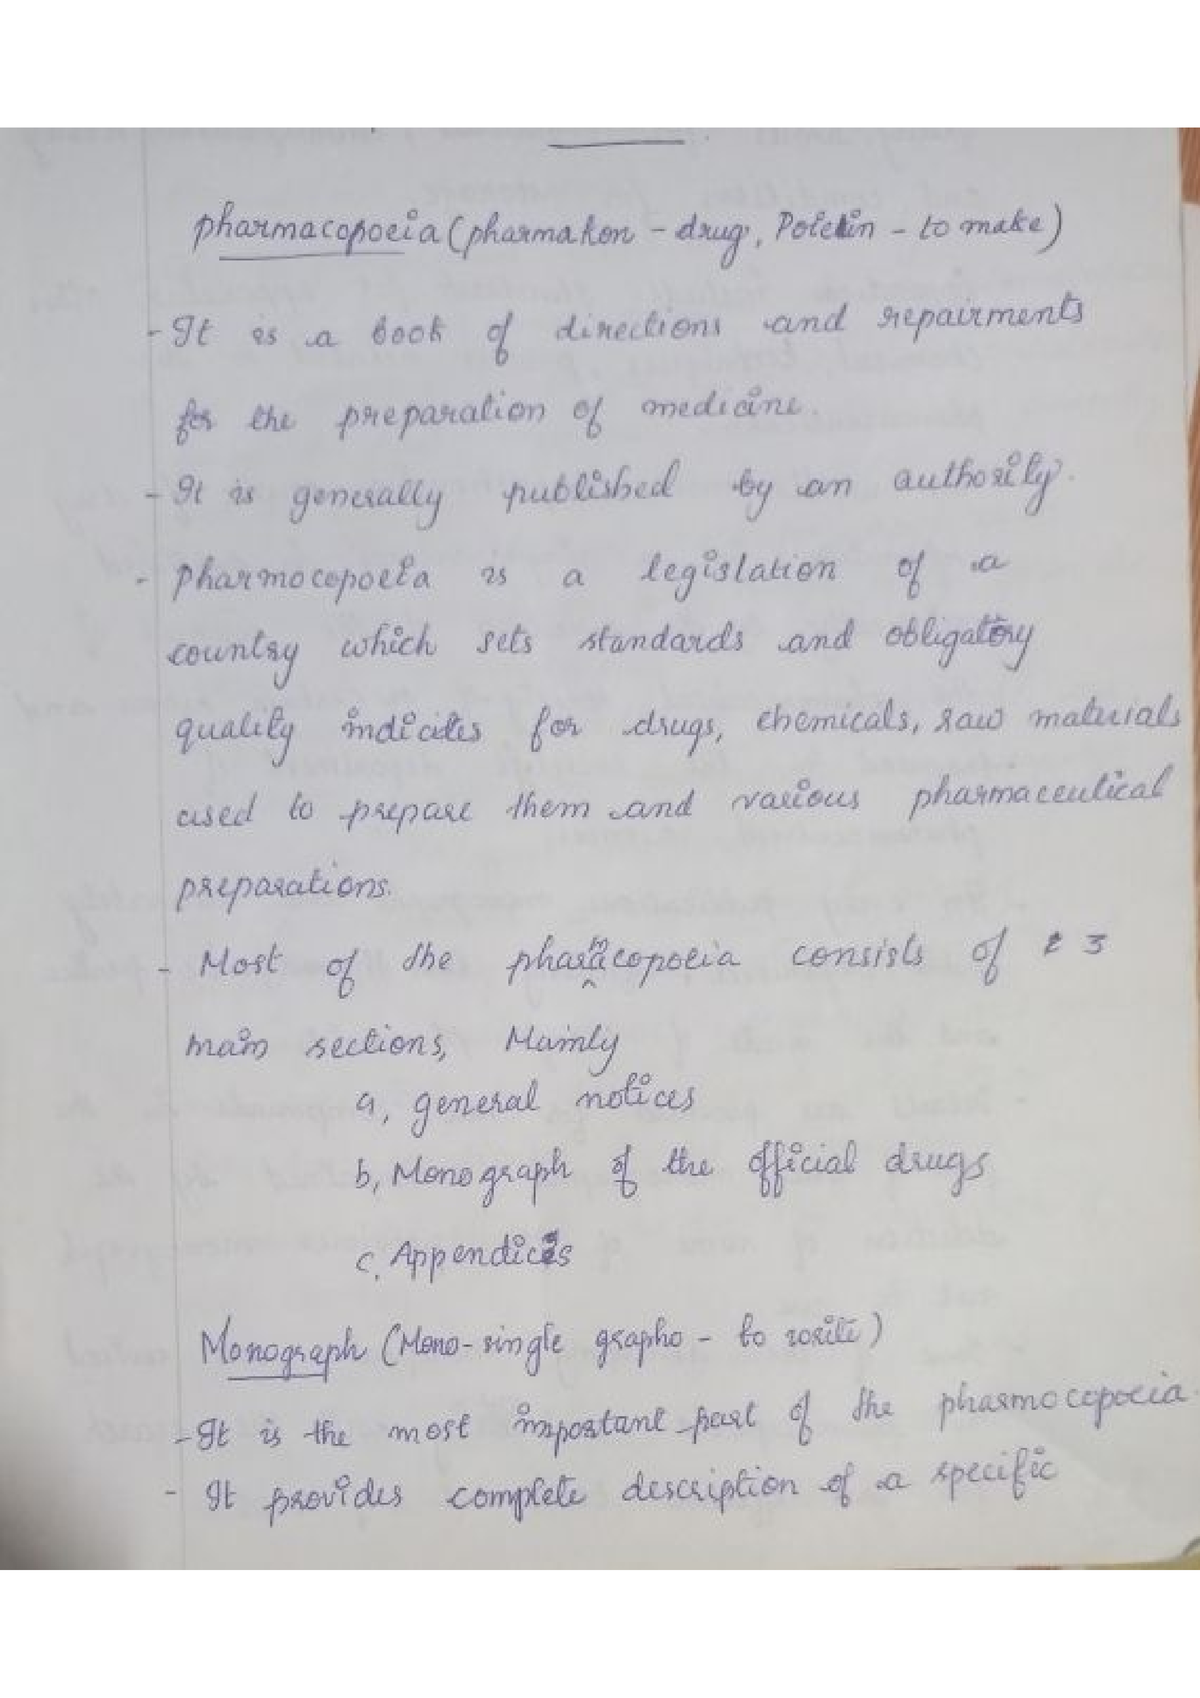 pharmacopoeia (pharmakon - drug, Poiein - to make)
- It is a book of directions and repairments
for the preparation of medicine.
- It is generally published by an authority.
- pharmocopoeia is a legislation of a
country which sets standards and obligatory
quality indicites for drugs, chemicals, raw materials
used to prepare them and various pharmaceutical
preparations.
- Most of the pharmacopoeia consists of 3
main sections, Mainly
a, general notices
b, Monograph of the official drugs
c, Appendices
Monograph (Mono-single grapho - to write)
- It is the most important part of the pharmocopoeia.
- It provides complete description of a specific